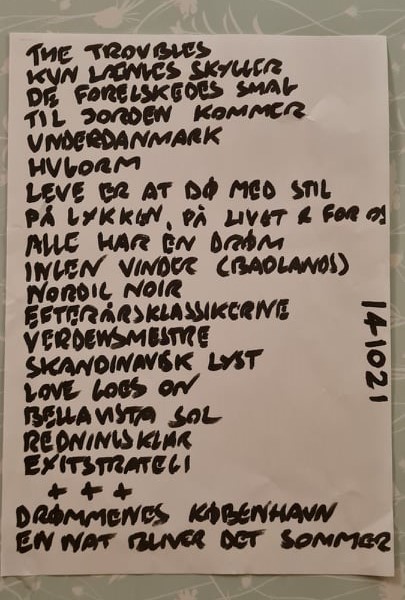 THE TROUBLES
KUN LÆNGES SKYLLER
DE FORELSKEDES SMAG
TIL JORDEN KOMMER
UNDERDANMARK
HUGORM
LEVE ER AT DØ MED STIL
PÅ LYKKEN, PÅ LIVET & FOR OS
ALLE HAR EN DRØM
INGEN VINDER (BADLANDS)
NORDIC NOIR
EFTERÅRSKLASSIKERNE
VERDENSMESTRE
SKANDINAVISK LYST
LOVE GOES ON
BELLAVISTA SOL
REDNINGSKLAR
EXITSTRATEGI
+ + +
DRØMMENES KØBENHAVN
EN NAT BLIVER DET SOMMER
141021